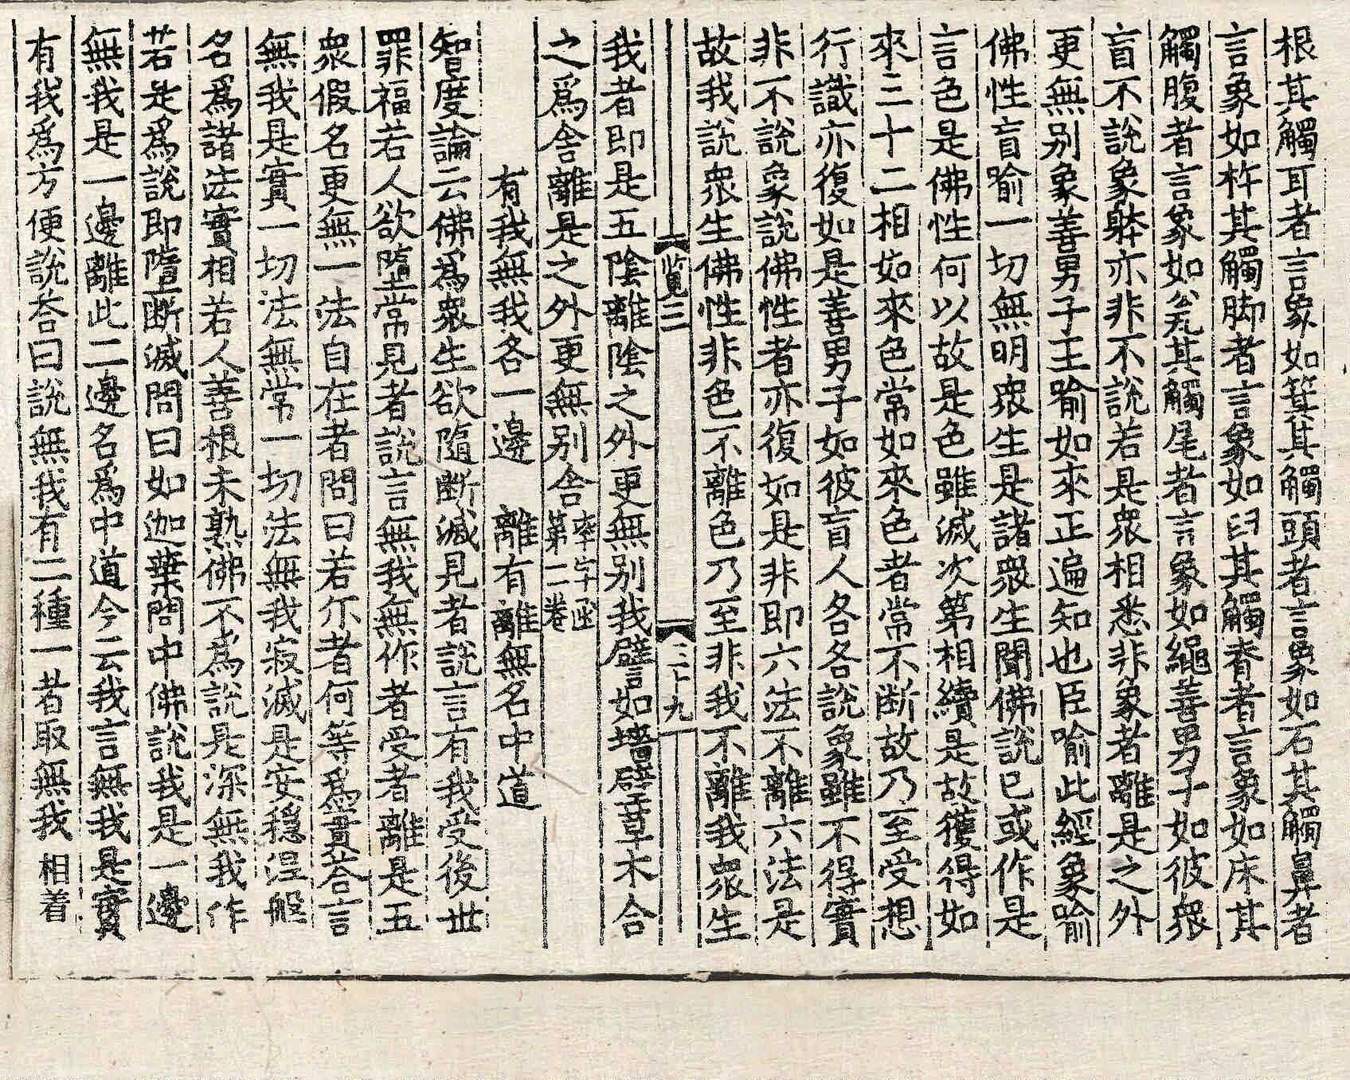 根其觸耳者言象如箕其觸頭者言象如石其觸鼻者
言象如杵其觸脚者言象如臼其觸脊者言象如床其
觸腹者言象如瓮其觸尾者言象如繩善男子如彼衆
盲不說象躰亦非不說若是衆相悉非象者離是之外
更無別象善男子王喻如來正遍知也臣喻此經象喻
佛性盲喻一切無明衆生是諸衆生聞佛說已或作是
言色是佛性何以故是色雖滅次第相續是故獲得如
來三十二相如來色常如來色者常不斷故乃至受想
行識亦復如是善男子如彼盲人各各說象雖不得實
非不說象說佛性者亦復如是非即六法不離六法是
故我說衆生佛性非色不離色乃至非我不離我衆生
三 三十九
我者即是五陰離陰之外更無別我譬如墻壁草木合
之爲舍離是之外更無別舍 第二卷
有我無我各一邊 離有離無名中道
智度論云佛爲衆生欲隨斷滅見者說言有我受後世
罪福若人欲墮常見者說言無我無作者受者離是五
衆假名更無一法自在者問曰若尒者何等爲實荅言
無我是實一切法無常一切法無我寂滅是安穩涅般
名爲諸法實相若人善根未熟佛不爲說是深無我作
若是爲說即墮斷滅問曰如迦葉問中佛說我是一邊
無我是一邊離此二邊名爲中道今云我言無我是實
有我爲方便說荅曰說無我有二種一者取無我相着